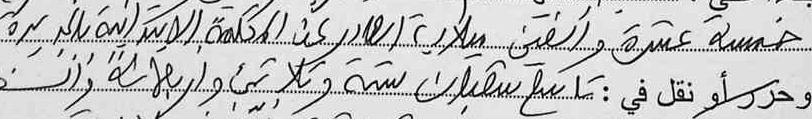 خمسة عشرة وألفين ميلادية الصادر عن المحكمة الابتدائية بالجديدة
وحرر أو نقل في : تاسع ستة وثلاثين وأربعمائة وألف